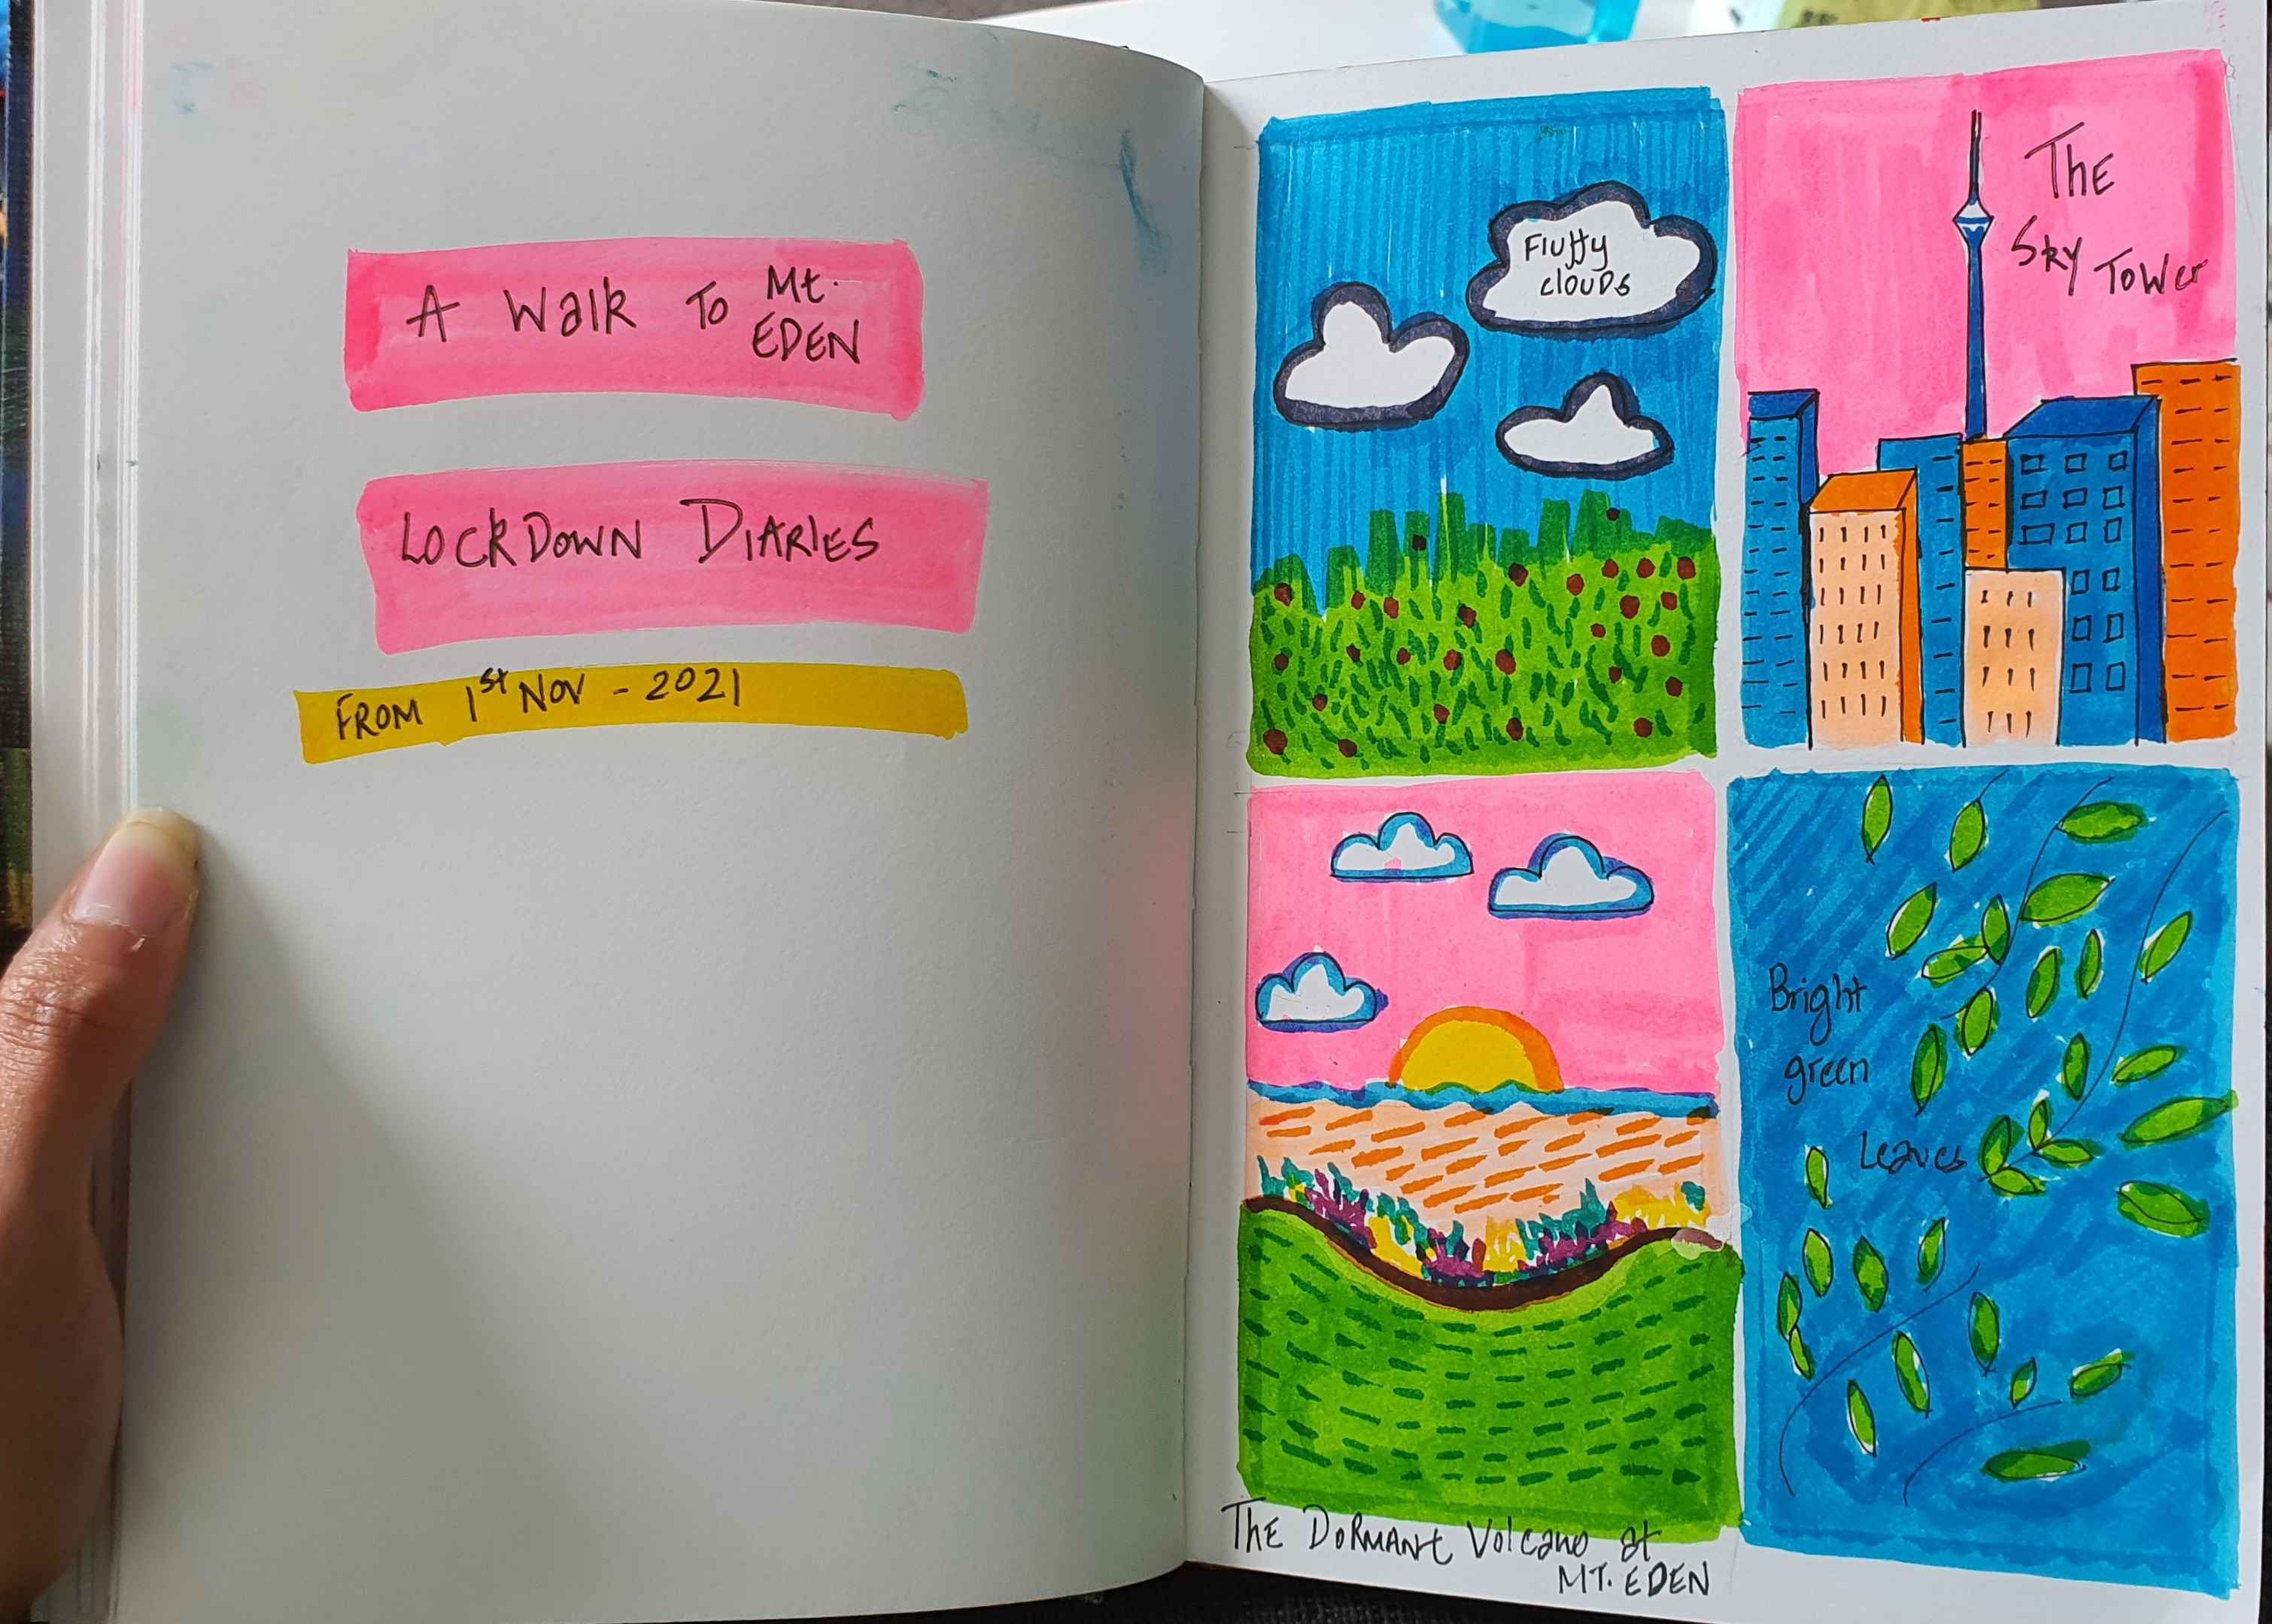 A Walk To Mt.
EDEN
LOCKDOWN DIARIES
FROM 1st NOV - 2021
Fluffy
clouds
The
Sky Tower
Bright
green
Leaves
THE DORMANt Volcano at
MT. EDEN